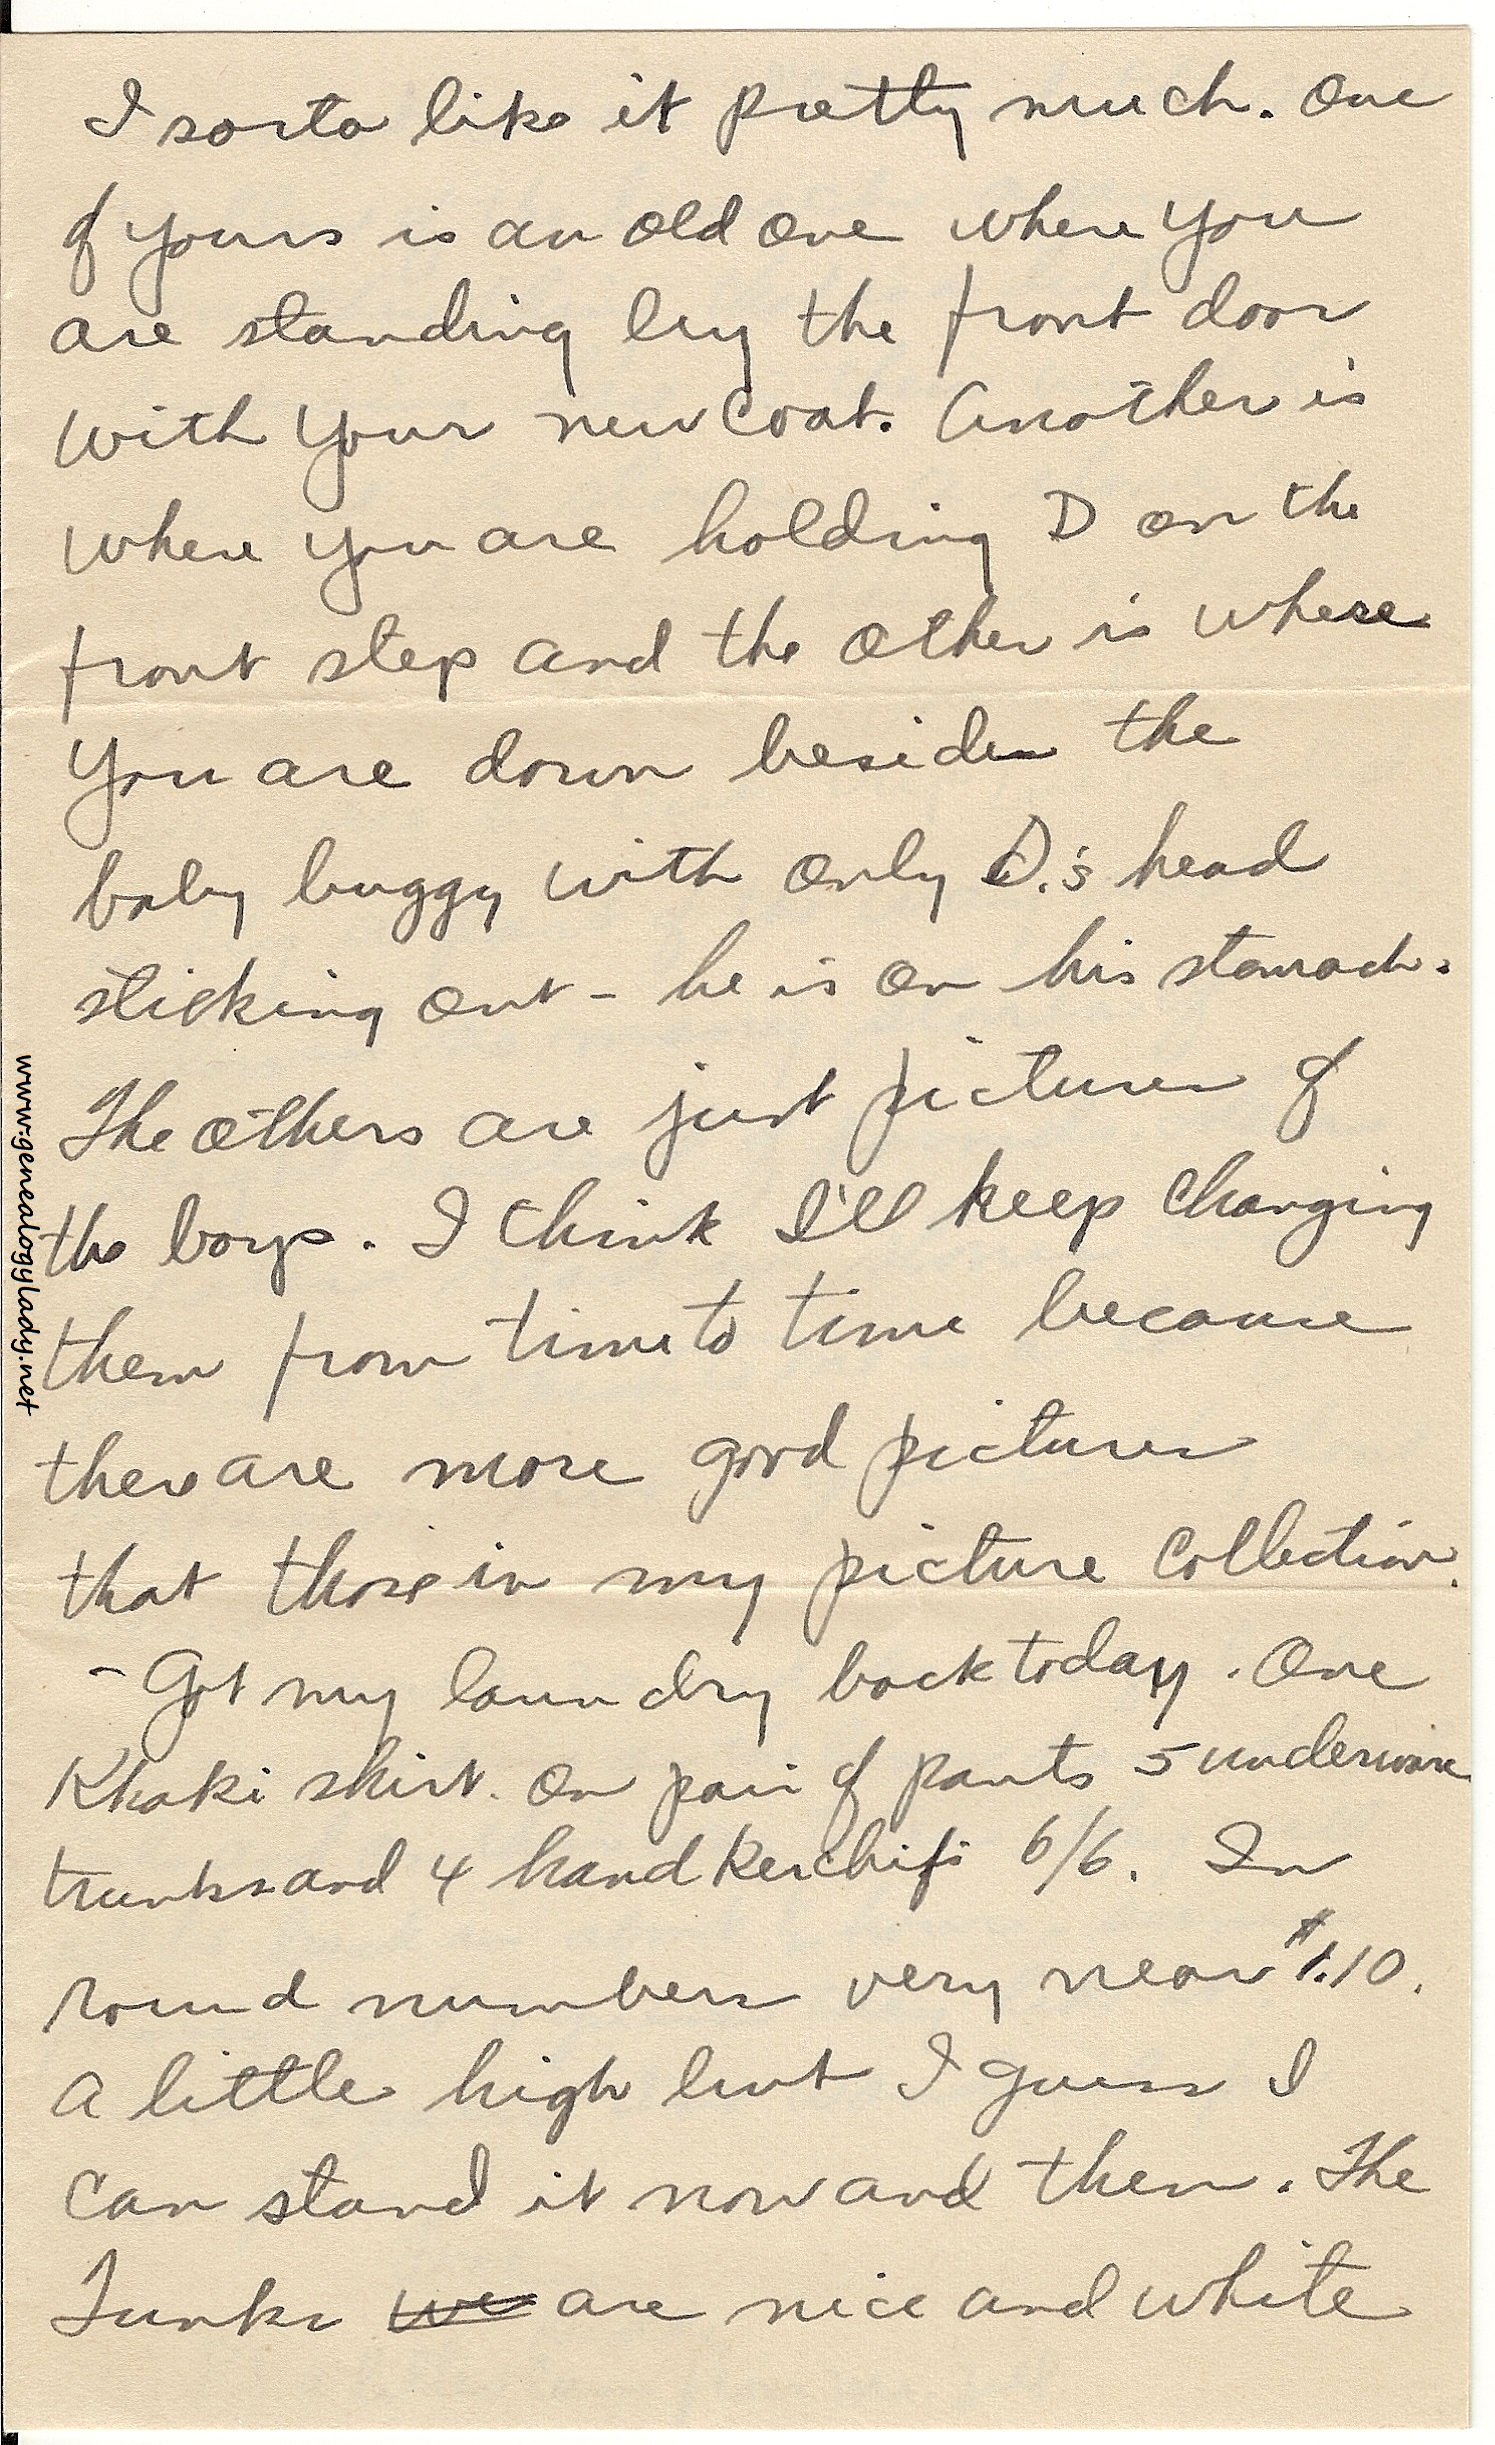 I sorta like it pretty much. One
of yours is an old one where you
are standing by the front door
with your new coat. Another is
where you are holding D on the
front step and the other is where
you are down beside the
baby buggy with only D.'s head
sticking out - he is on his stomach.
The others are just pictures of
the boys. I think I'll keep changing
them from time to time because
there are more good pictures
that those in my picture collection.
- Got my laundry back today. One
Khaki shirt. On pair of pants 5 underware
trunks and 4 handkerchifs 6/6. In
round numbers very near $1.10.
A little high but I guess I
can stand it now and then. The
Trunks we are nice and white
www.genealogylady.net